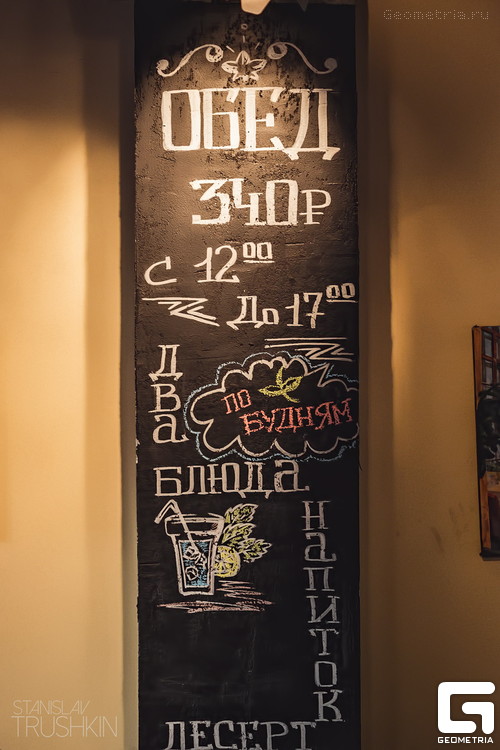 Geometria.ru
ОБЕД
340₽
С 12⁰⁰
До 17⁰⁰
ДВа
ПО
БУДНЯМ
БЛЮДа
НаПИТОК
ДЕСЕРТ
STANISLAV
TRUSHKIN
GEOMETRIA